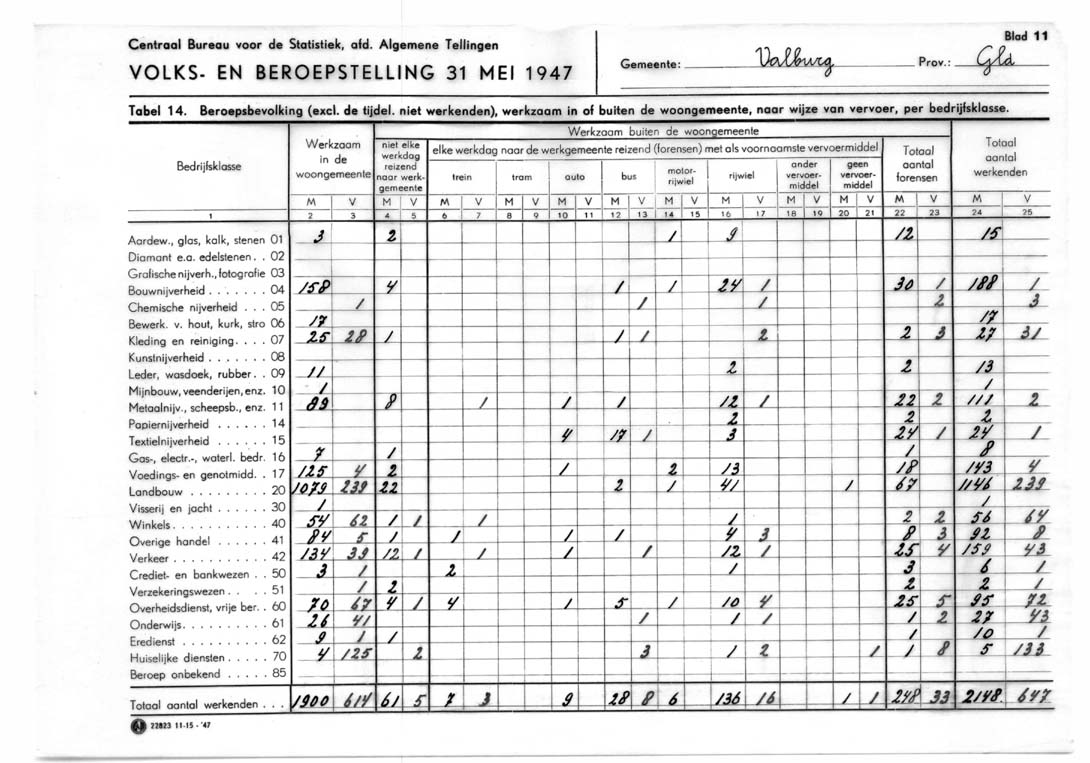 Centraal Bureau voor de Statistiek, afd. Algemene Tellingen
VOLKS- EN BEROEPSTELLING 31 MEI 1947
Blad 11
Gemeente: Valburg Prov.: Gld
Tabel 14. Beroepsbevolking (excl. de tijdel. niet werkenden), werkzaam in of buiten de woongemeente, naar wijze van vervoer, per bedrijfsklasse.
Bedrijfsklasse
Werkzaam in de woongemeente
Werkzaam buiten de woongemeente
niet elke werkdag reizend naar werkgemeente
elke werkdag naar de werkgemeente reizend (forensen) met als voornaamste vervoermiddel
trein tram auto bus motor-rijwiel rijwiel ander vervoer-middel geen vervoer-middel
Totaal aantal forensen
Totaal aantal werkenden
M V M V M V M V M V M V M V M V M V M V M V M V
1 2 3 4 5 6 7 8 9 10 11 12 13 14 15 16 17 18 19 20 21 22 23 24 25
Aardew., glas, kalk, stenen 01 3 2 1 9 12 15
Diamant e.a. edelstenen . . 02
Grafische nijverh., fotografie 03
Bouwnijverheid . . . . . . . 04 158 4 1 1 24 1 30 1 188 1
Chemische nijverheid . . . 05 1 1 1 2 3
Bewerk. v. hout, kurk, stro 06 17 17
Kleding en reiniging. . . . 07 25 28 1 1 1 2 2 3 27 31
Kunstnijverheid . . . . . . . 08
Leder, wasdoek, rubber . . 09 11 2 2 13
Mijnbouw, veenderijen, enz. 10 1 1
Metaalnijv., scheepsb., enz. 11 89 8 1 1 1 12 1 22 2 111 2
Papiernijverheid . . . . . . 14 2 2 2
Textielnijverheid . . . . . . 15 4 17 1 3 24 1 24 1
Gas-, electr.-, waterl. bedr. 16 7 1 1 8
Voedings- en genotmidd. . 17 125 4 2 1 2 13 18 143 4
Landbouw . . . . . . . . . 20 1079 239 22 2 1 41 1 67 1146 239
Visserij en jacht . . . . . . 30 1 1
Winkels . . . . . . . . . . . 40 54 62 1 1 1 1 2 2 56 64
Overige handel . . . . . . 41 84 5 1 1 1 1 4 3 8 3 92 8
Verkeer . . . . . . . . . . . 42 134 39 12 1 1 1 1 12 1 25 4 159 43
Crediet- en bankwezen . . 50 3 1 2 1 3 6 1
Verzekeringswezen . . . 51 1 2 2 2 1
Overheidsdienst, vrije ber. . 60 70 67 4 1 4 1 5 1 10 4 25 5 95 72
Onderwijs . . . . . . . . . . 61 26 41 1 1 1 1 2 27 43
Eredienst . . . . . . . . . . 62 9 1 1 1 10 1
Huiselijke diensten . . . . . 70 4 125 2 3 1 2 1 1 8 5 133
Beroep onbekend . . . . . 85
Totaal aantal werkenden . . . 1900 614 61 5 7 3 9 28 8 6 136 16 1 1 248 33 2148 647
22823 11-15 - '47